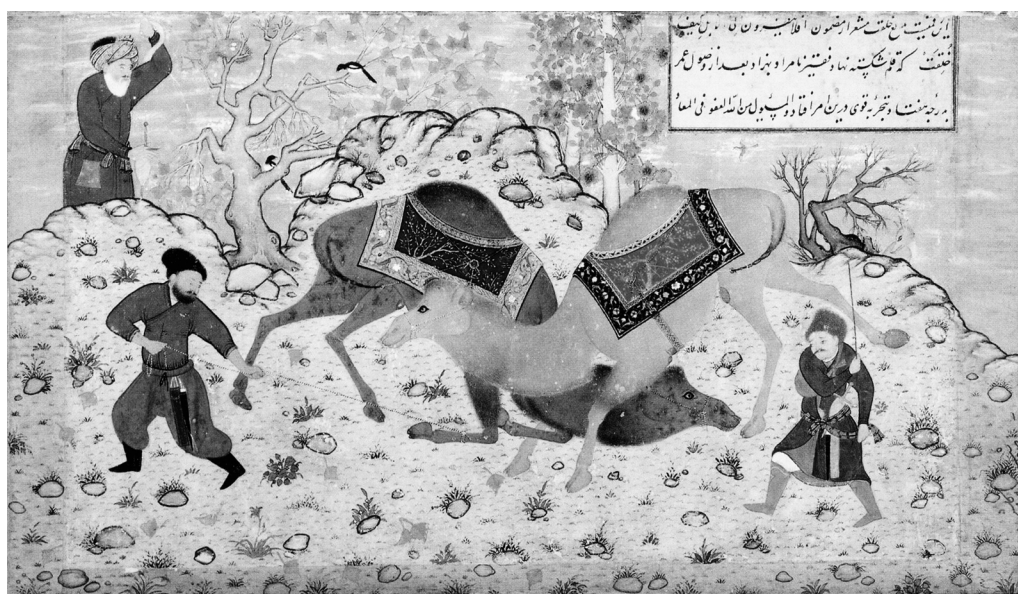 خلقت مشعر از مضمون افلا ینظرون الی الابل کیف
خلقت که قلم شکسته نهاد فقیر نامراد بهزاد بعد از وصول عمر
بدرجه هفتاد و تجربه قوی درین امر افتاد والمسؤل من الله العفو فی المعاد